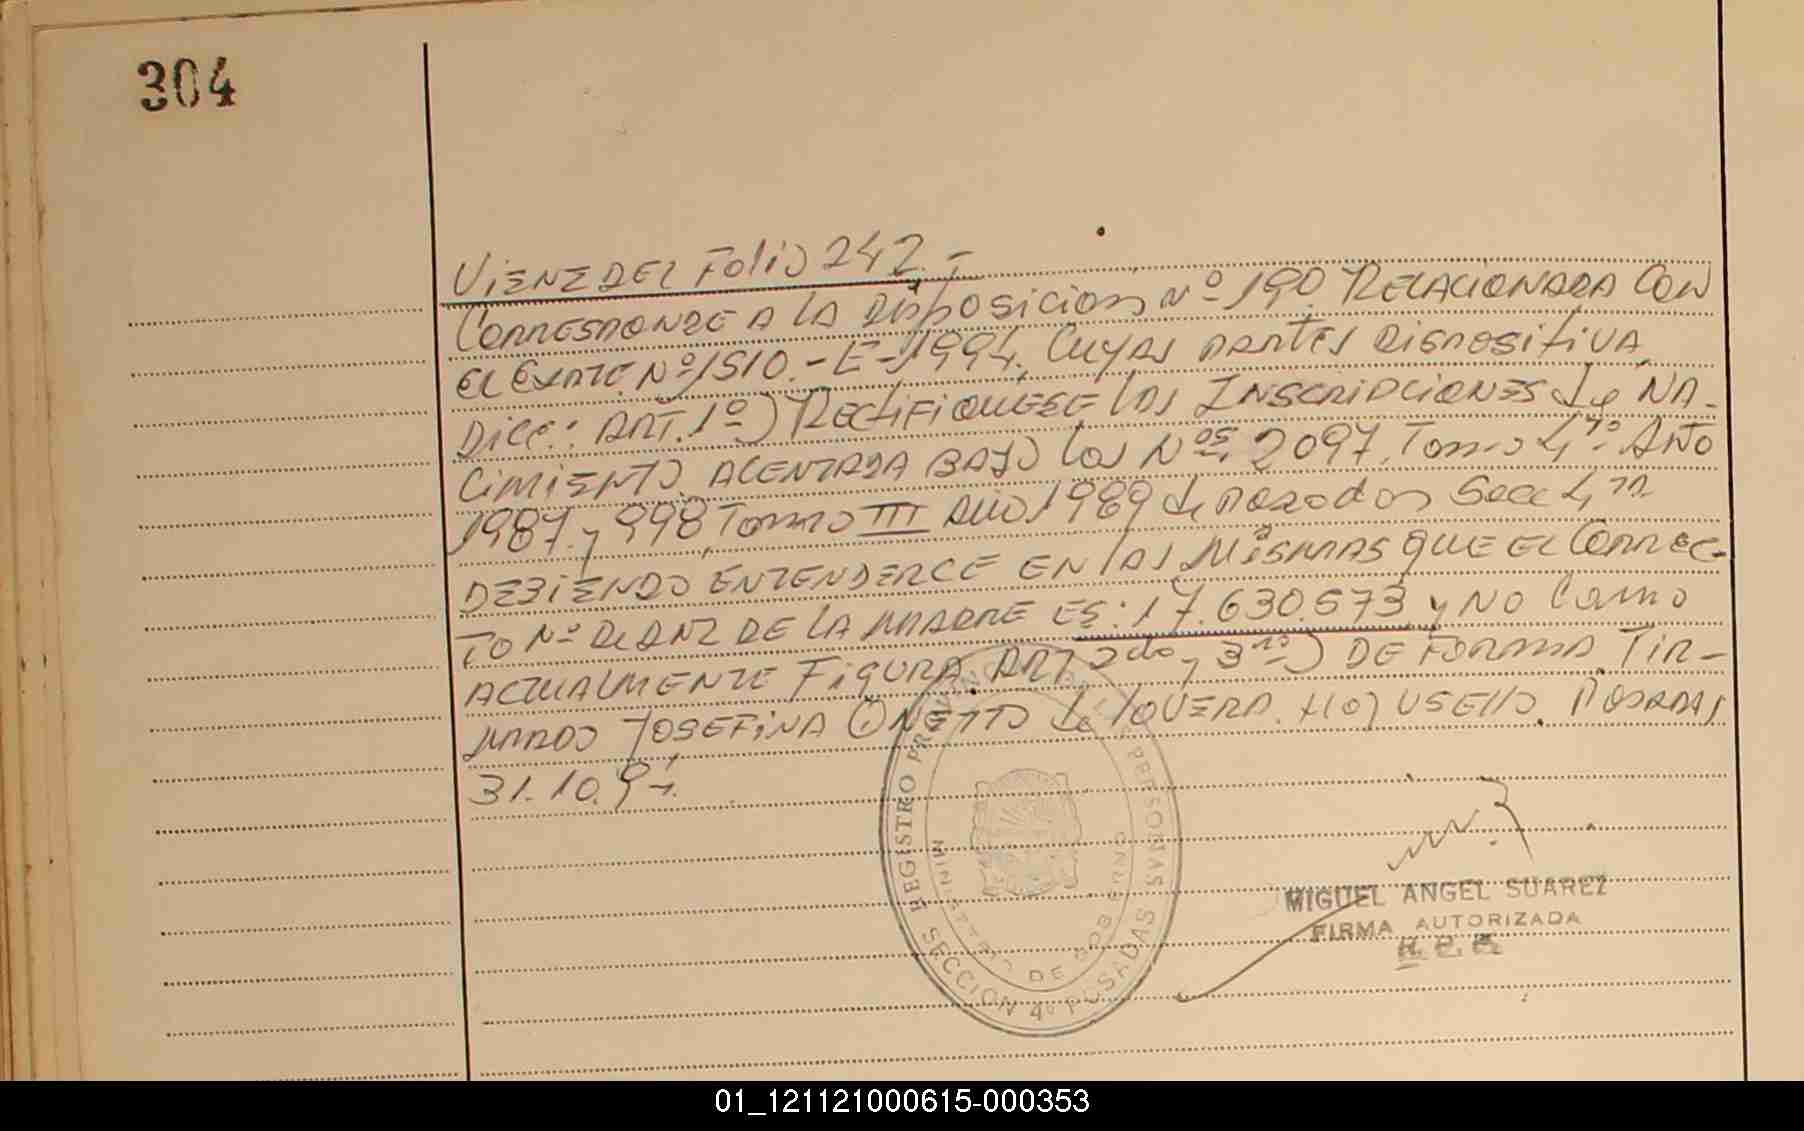 304
VIENE DEL FOLIO 242.-
CORRESPONDE A LA DISPOSICION Nº 190 RELACIONADA CON
EL EXPTE. Nº 1510.-E-1994, CUYAS PARTES DISPOSITIVA
DICE: ART. 1º) RECTIFIQUESE LAS INSCRIPCIONES de NA-
CIMIENTO ACENTADA BAJO LOS Nos 2097, TOMO 4to AÑO
1987 y 998, TOMO III AÑO 1989 de POSADAS SECC 4ta
DEBIENDO ENTENDERCE EN LAS MISMAS QUE EL CORREC-
TO Nº de DNI DE LA MADRE ES: 17.630.573 y NO COMO
ACTUALMENTE FIGURA. ART 2do y 3ro) DE FORMA. FIR-
MADO JOSEFINA ONETTO de LOVERA. HAY SELLO. POSADAS
31.10.94.
REGISTRO PROVINCIAL DE LAS PERSONAS
MINISTERIO DE GOBIERNO
SECCION 4º POSADAS
MIGUEL ANGEL SUAREZ
FIRMA AUTORIZADA
01_121121000615-000353